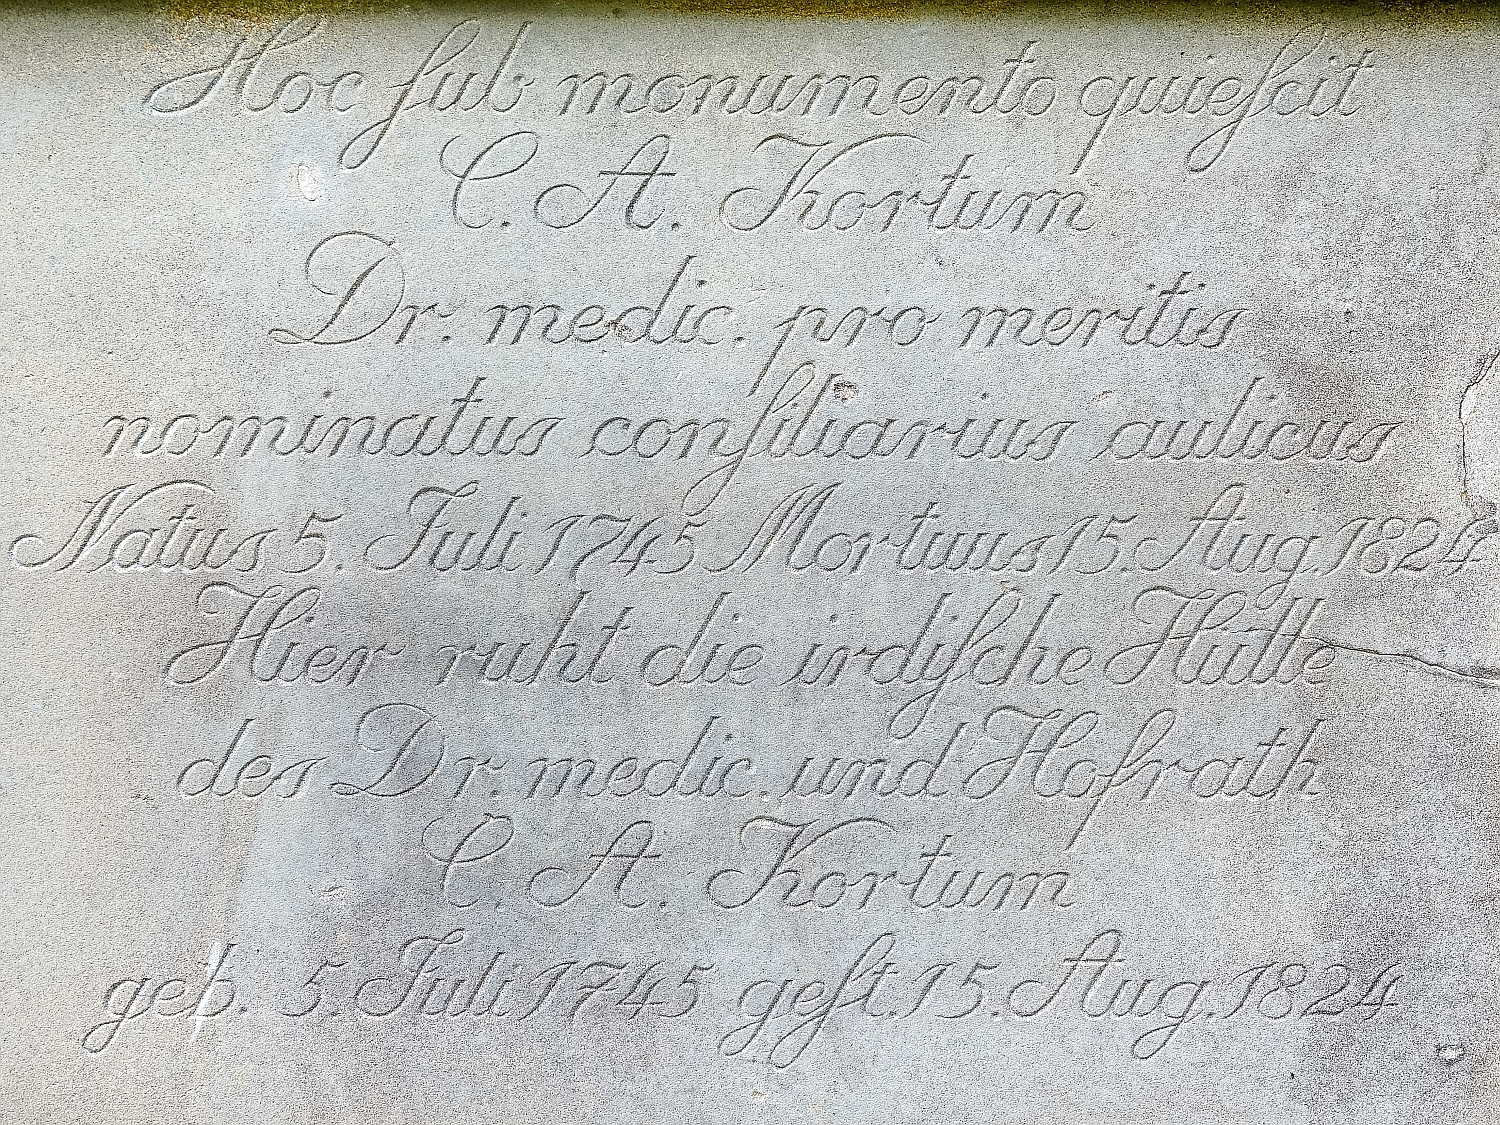 Hoc ſub monumento quieſcit
C. A. Kortum
Dr. medic. pro meritis
nominatus conſiliarius aulicus
Natus 5. Juli 1745 Mortuus 15. Aug. 1824
Hier ruht die irdiſche Hütte
des Dr. medic. und Hofrath
C. A. Kortum
geb. 5. Juli 1745 geſt. 15. Aug. 1824